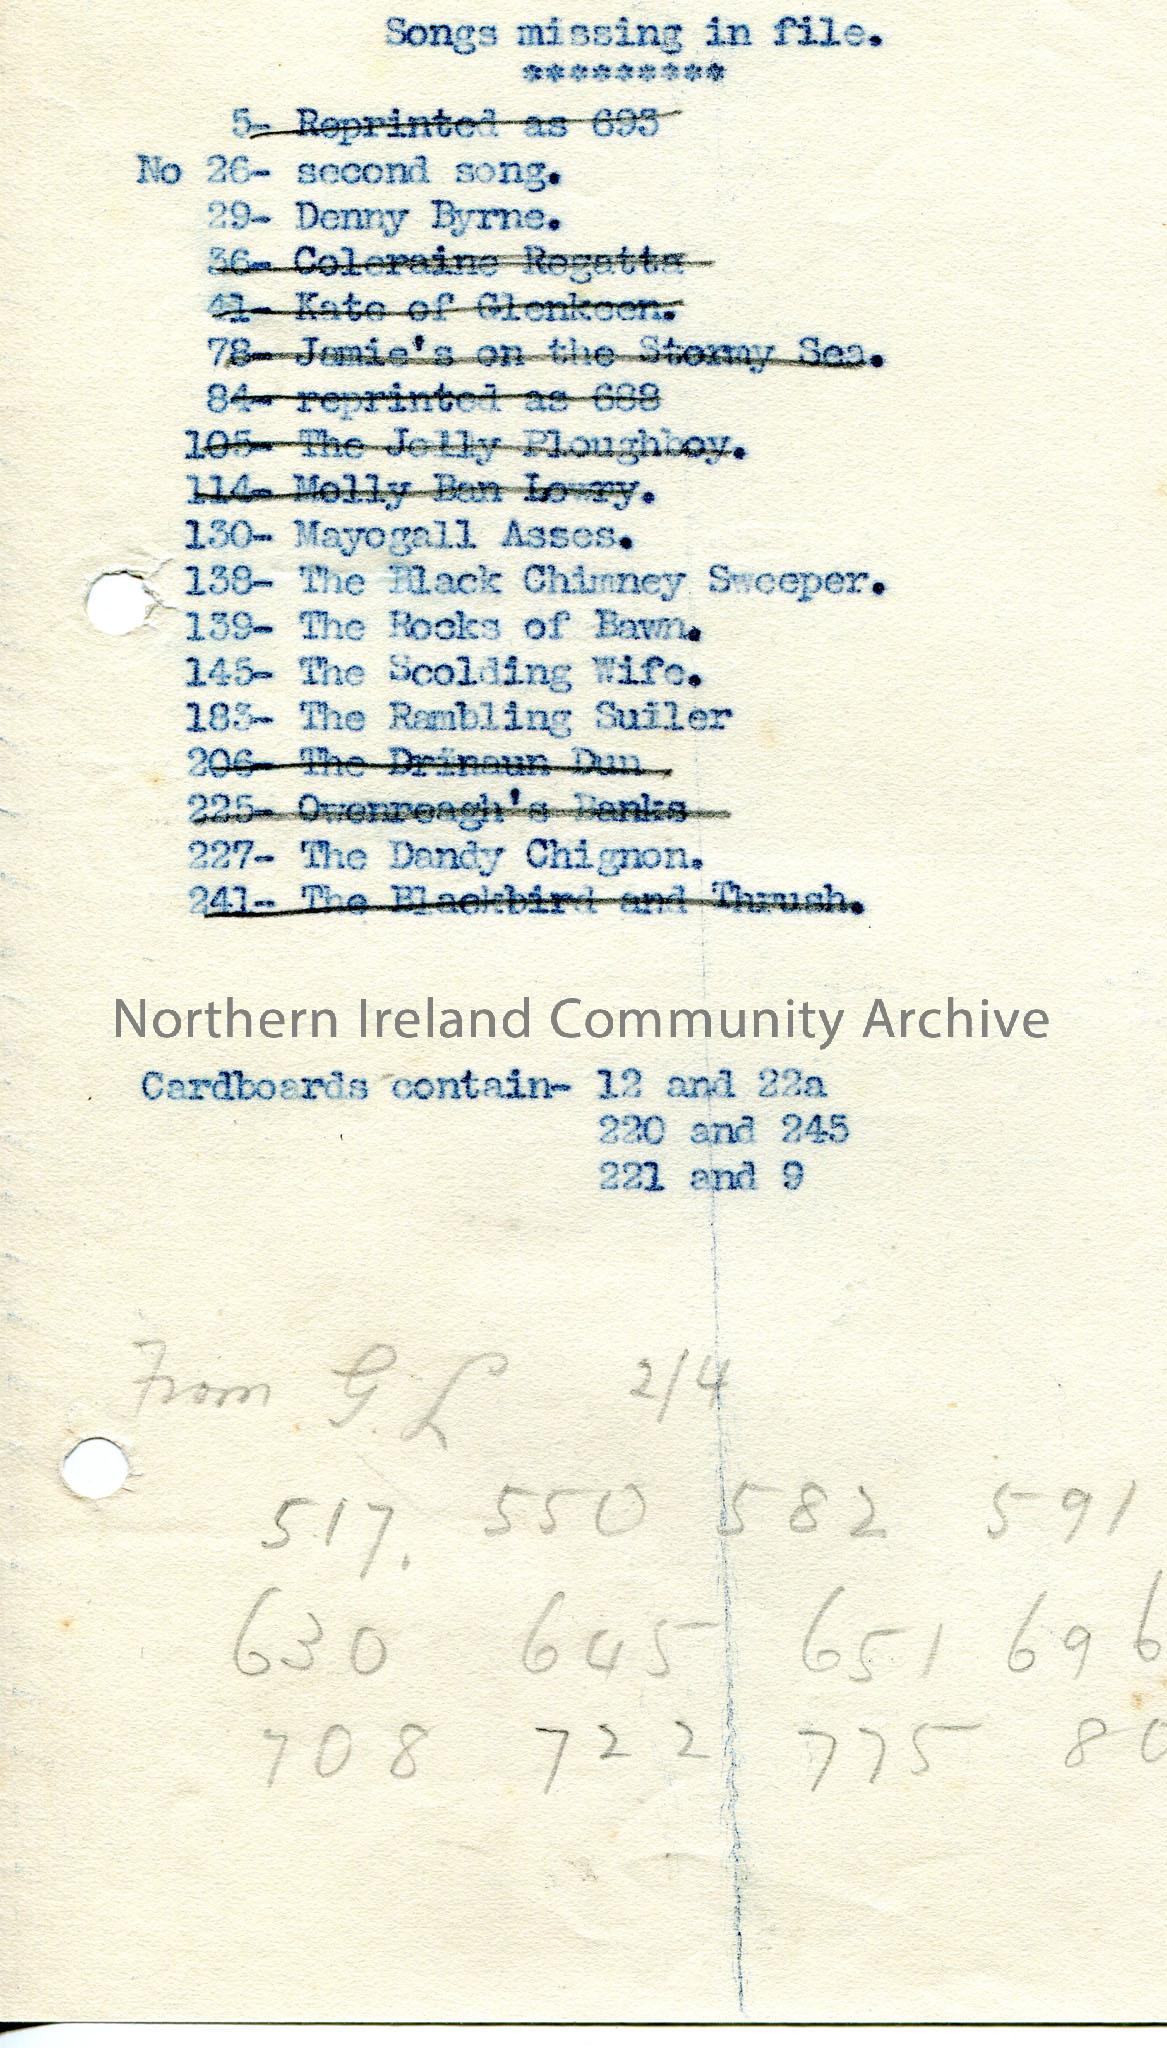 Songs missing in file.
*********
5- Reprinted as 693
No 26- second song.
29- Denny Byrne.
36- Coleraine Regatta
41- Kate of Glenkeen.
78- Jamie's on the Stormy Sea.
84- reprinted as 688
105- The Jolly Ploughboy.
114- Molly Ban Lowry.
130- Mayogall Asses.
138- The Black Chimney Sweeper.
139- The Rocks of Bawn.
145- The Scolding Wife.
183- The Rambling Suiler
206- The Drinaun Dun.
225- Owenreagh's Banks
227- The Dandy Chignon.
241- The Blackbird and Thrush.
Northern Ireland Community Archive
Cardboards contain- 12 and 22a
220 and 245
221 and 9
From G. L 2/4
517. 550 582 591
630 645 651 696
708 722 775 80